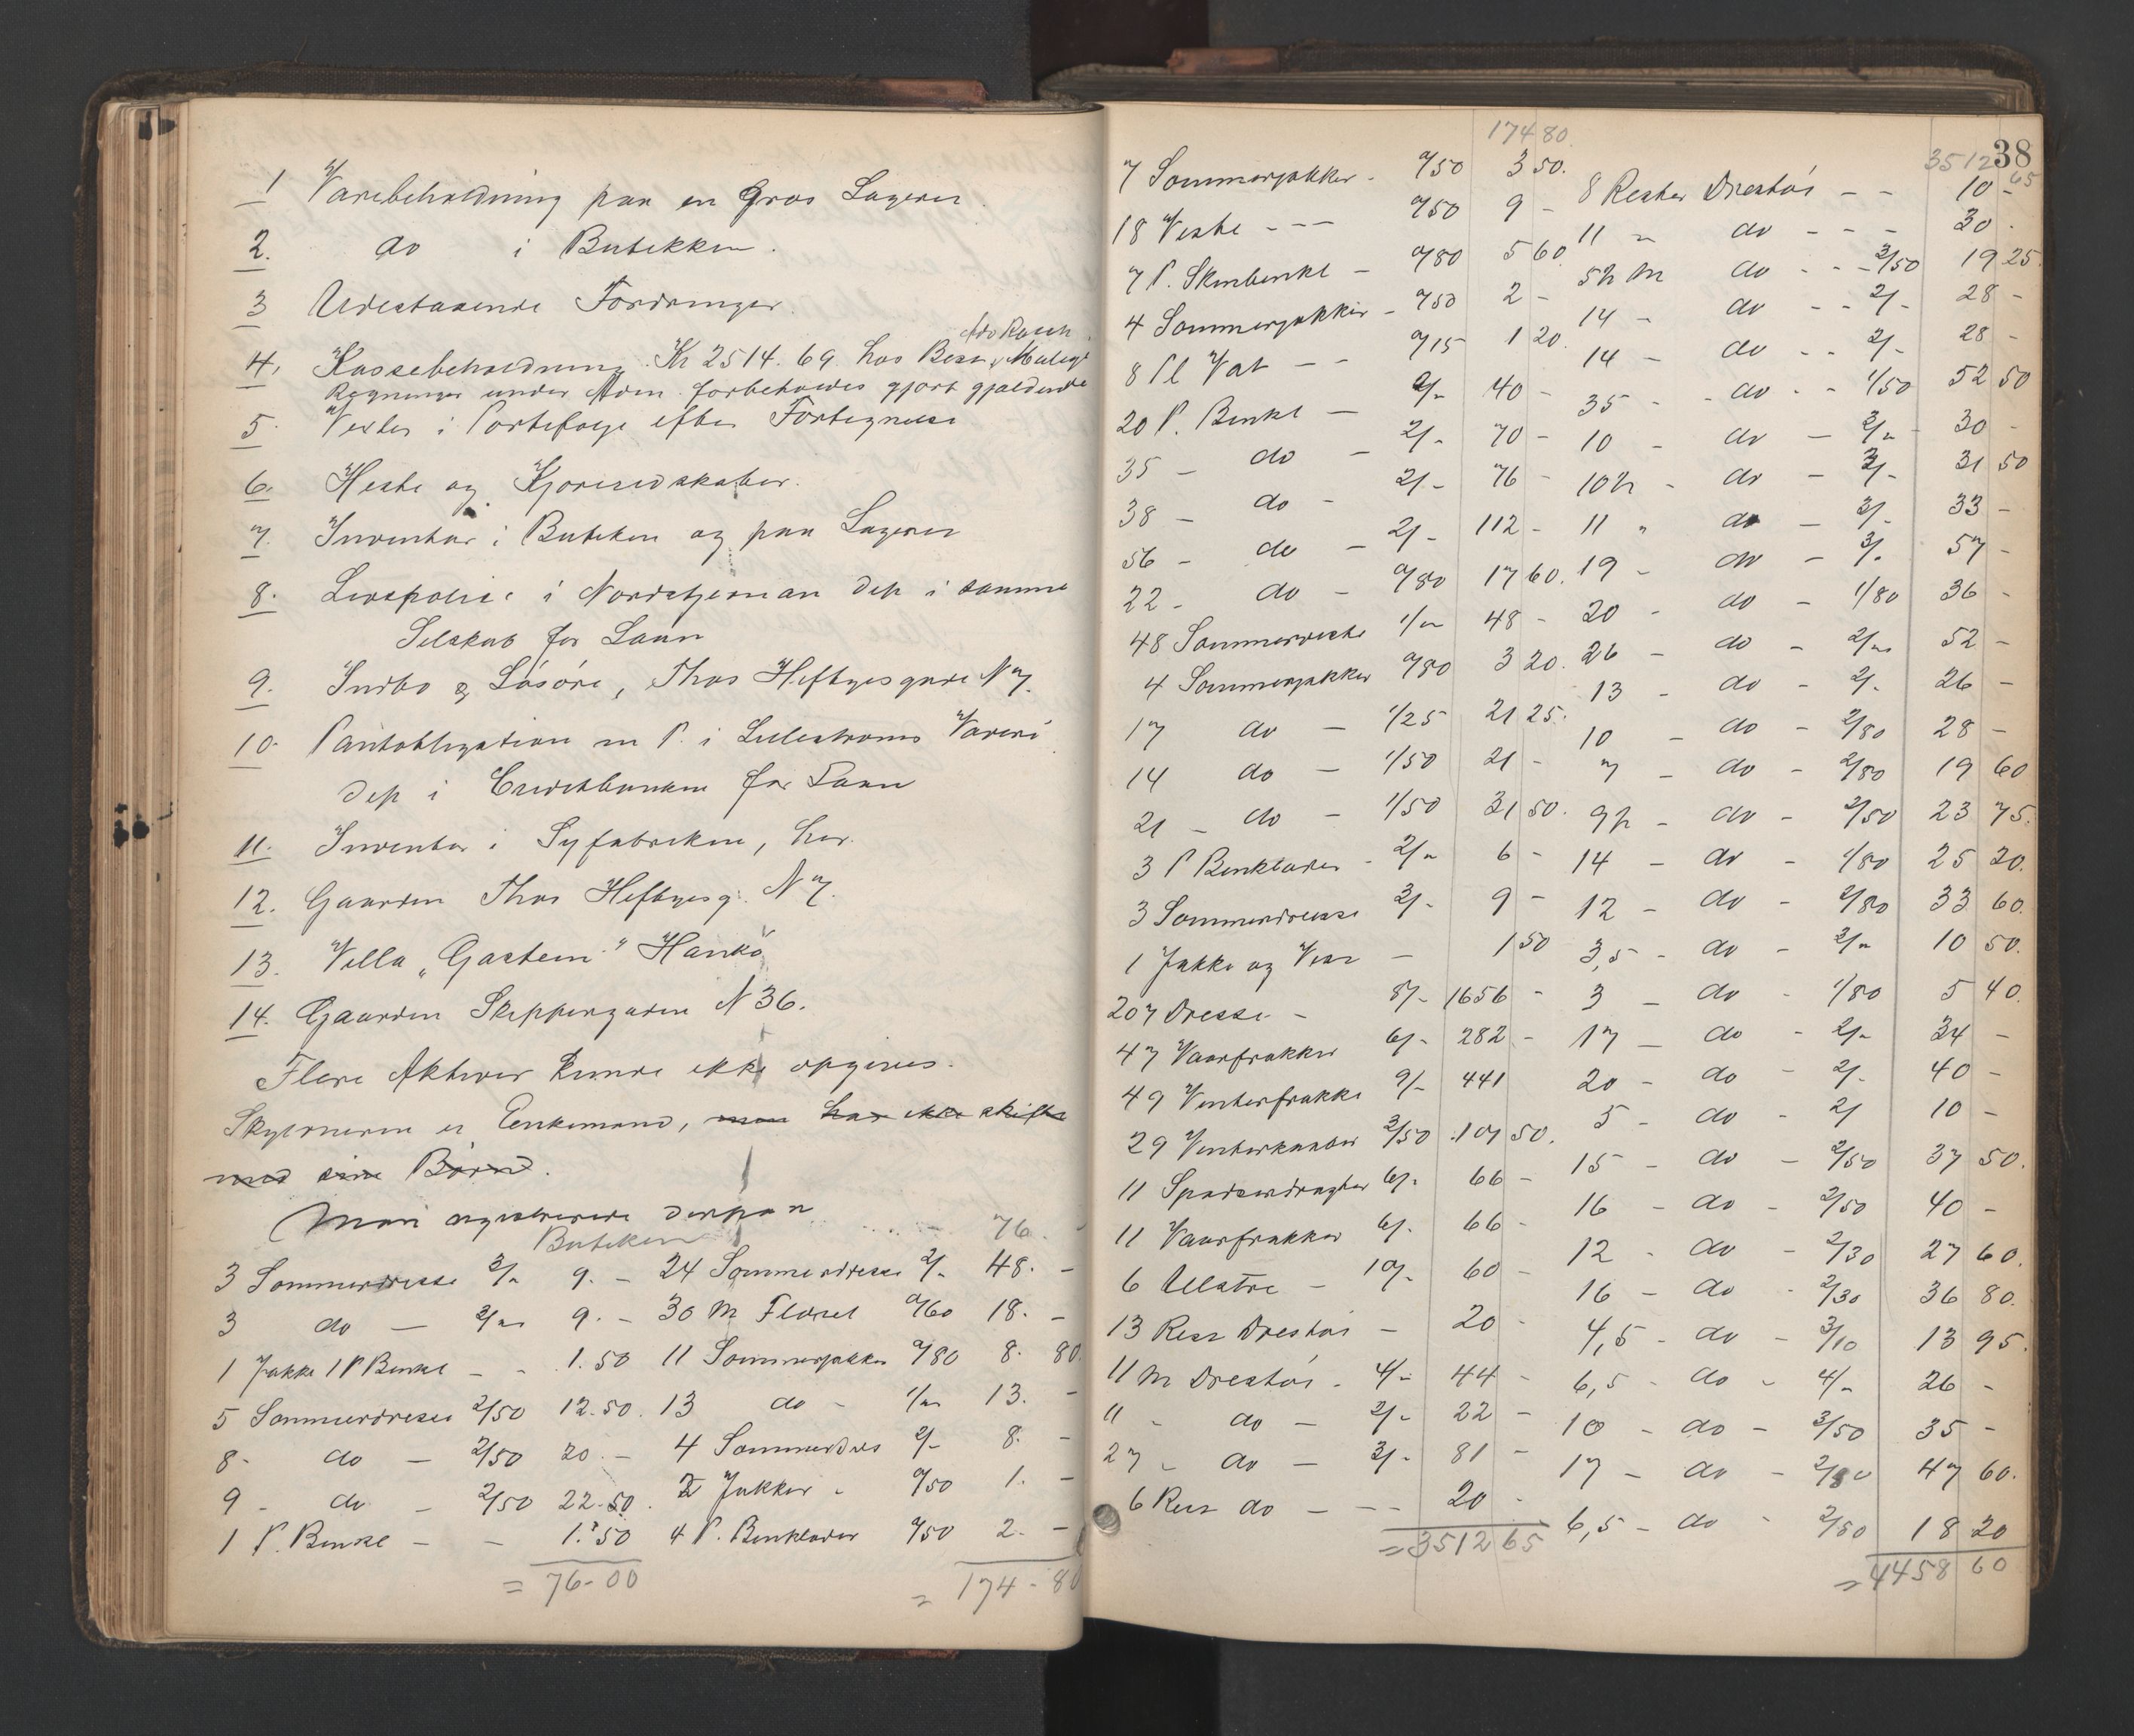 1 Varebeholdning paa en Gros Lageret.
2. do i Butikken.
3 Udestaaende Fordringer.
Adv Rasch
4. Kassebeholdning Kr 2514.69 hos Best.
Regninger under Adm. forbeholdes gjort gjældende
5. Vexler i Portefølge efter Fortegnelse
6. Heste og Kjøreredskaber.
7. Inventar i Butiken og paa Lageret
8. Livspolise i Nordstjernan dep i samme
Selskab for Laan
9. Indbo & Løsøre, Thos Heftyesgade N 7.
10. Pantobligation m P. i Lillestrøms Væveri
dep i Creditbanken for Laan
11. Inventar i Syfabriken, her.
12. Gaarden Thos Heftyesg. N 7.
13. Villa „Gastein" Hankø
14. Gaarden Skippergaden N 36.
Flere Aktiver kunde ikke opgives.
Skyldneren er Enkemand, men har ikke skiftet
med sine Børn.
Man registrerede derpaa
Butiken 76. -
3 Sommerdresse 3/- 9. - 24 Sommerdresse 2/- 48. -
3 do — 3/- 9. - 30 M Flonel 0/60 18. -
1 Jakke 1 P Benkl - - 1.50 11 Sommerjakker 0/80 8. 80.
5 Sommerdresse 2/50 12.50. 13 do - 1/- 13. -
8 - do — 2/50 20. - 4 Sommerdres 2/- 8. -
9 - do - 2/50 22.50. 2 Jakker - 0/50 1. -
1 P. Benkl - - 1.50 4 P. Benklæder 0/50 2. -
= 76-00 = 174-80
174 80.
7 Sommerjakker - 0/50 3 50.
18 Veste - - - 0/50 9 -
7 P. Skinbenkl - 0/80 5 60
4 Sommerjakker - 0/50 2 -
8 Pl Vat - - 0/15 1 20.
20 P. Benkl - 2/- 40 -
35 - do - 2/- 70 -
38 - do - 2/- 76 -
56 - do - 2/- 112 -
22 - do - 0/80 17 60.
48 Sommerveste 1/- 48 -
4 Sommerjakker 0/80 3 20.
17 do - 1/25 21 25.
14 do - 1/50 21 -
21 - do - 1/50 31 50.
3 P Benklæder - 2/- 6 -
3 Sommerdresse 3/- 9 -
1 Jakke og Vest - 1 50
207 Dresse - 8/- 1656 -
47 Vaarfrakker 6/- 282 -
49 Vinterfrakke 9/- 441
29 Vinterkaaber 3/50 101 50.
11 Spaserdragter 6/- 66 -
11 Vaarfrakker 6/- 66 -
6 Ulstre - 10/- 60 -
13 Rest Drestøi - 20 -
11 M Drestøi - 4/- 44 -
11 - do - 2/- 22 -
27 - do - 3/- 81 -
6 Rest do - - - 20 -
= 3512 65
38
3512 65
8 Rester Drestøi - - 10 -
11 " do - - - 30 -
5½ M do - - - 3/50 19 25.
14 - do - - 2/- 28 -
14 - do - - 2/- 28 -
35 - - do - - 1/50 52 50
10 - do - 3/- 30 -
10½ - do - 3/- 31 50
11 " do - 3/- 33 -
19 - do - 3/- 57 -
20 - do - 1/80 36 -
26 - do - 2/- 52 -
13 - do - 2/- 26 -
10 - do - 2/80 28 -
7 - do - 2/80 19 60
9½ - do - 2/50 23 75.
14 - do - 1/80 25 20.
12 - do - 2/80 33 60.
3,5 - do - 3/- 10 50.
3 - do - 1/80 5 40.
17 - do - 2/- 34 -
20 - do - 2/- 40 -
5 - do - 2/ 10 -
15 - do - 2/50 37 50.
16 - do - 2/50 40 -
12 - do - 2/30 27 60.
16 - do - 2/30 36 80.
4,5 - do - 3/10 13 95.
6,5 - do - 4/- 26 -
10 - do - 3/50 35 -
17 - do - 2/80 47 60.
6,5 - do - 2/80 18 20
= 4458 60